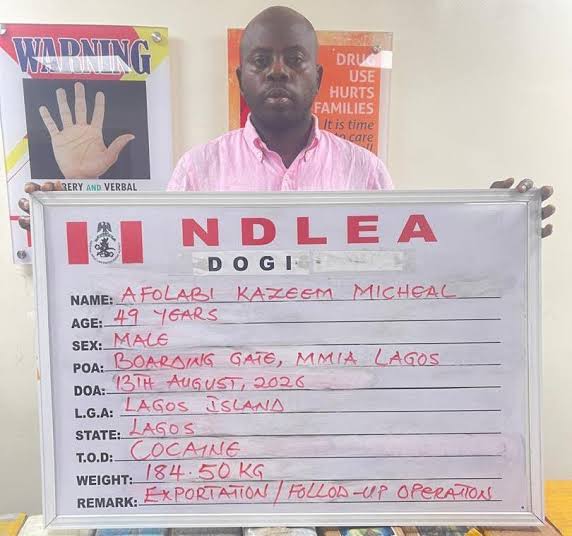 WARNING
BERY AND VERBAL
DRUG
USE
HURTS
FAMILIES
It is time
to care
NDLEA
DOGI
NAME: AFOLABI KAZEEM MICHEAL
AGE: 49 YEARS
SEX: MALE
POA: BOARDING GATE, MMIA LAGOS
DOA: 13TH AUGUST, 2026
L.G.A: LAGOS ISLAND
STATE: LAGOS
T.O.D: COCAINE
WEIGHT: 184.50 KG
REMARK: EXPORTATION / FOLLOD-UP OPERATION